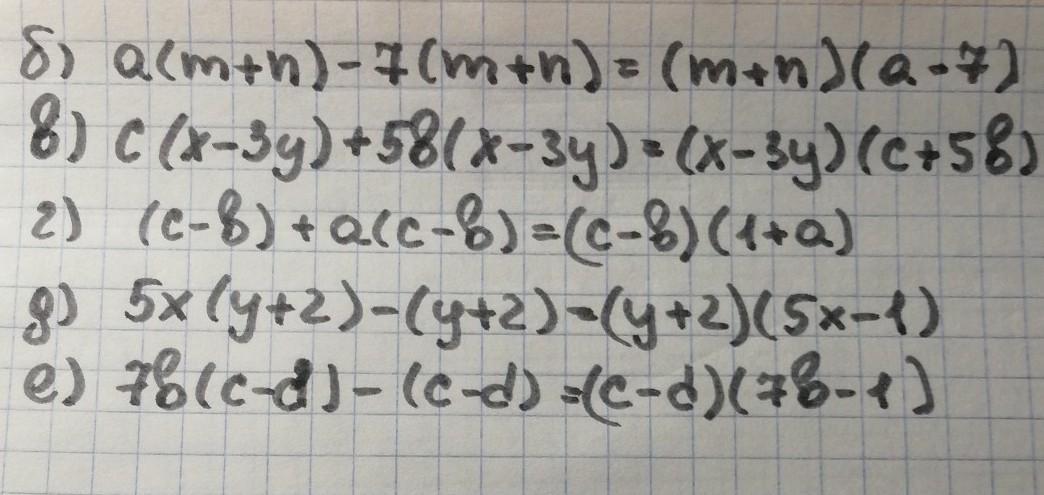 б) a(m+n)-7(m+n)=(m+n)(a-7)
в) c(x-3y)+5b(x-3y)=(x-3y)(c+5b)
г) (c-b)+a(c-b)=(c-b)(1+a)
д) 5x(y+2)-(y+2)=(y+2)(5x-1)
е) 7b(c-d)-(c-d)=(c-d)(7b-1)